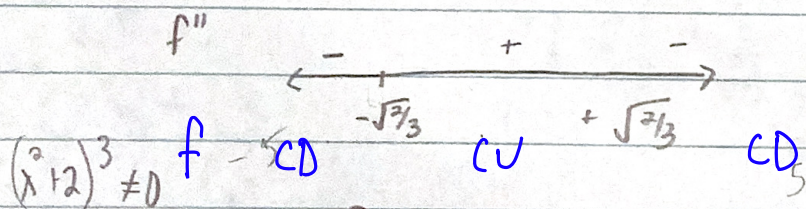 f"
- + -
-√2/3 + √2/3
(x²+2)³ ≠0 f CD CU CD